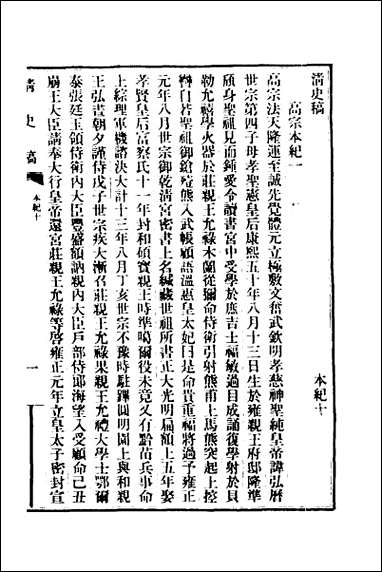 清史稿 本紀十
高宗本紀一
高宗法天隆運至誠先覺體元立極敷文奮武欽明孝慈神聖純皇帝諱弘曆
世宗第四子母孝聖憲皇后康熙五十年八月十三日生於雍親王府邸隆準
頎身聖祖見而鍾愛令讀書宮中受學於庶吉士福敏過目成誦復學射於貝
勒允禧學火器於莊親王允祿木蘭從獮命侍衛引射熊甫上馬熊突起上控
轡自若聖祖御鎗殪熊入武帳顧語溫惠皇太妃曰是命貴重福將過予雍正
元年八月世宗御乾清宮密書上名緘藏世祖所書正大光明扁額上五年娶
孝賢皇后富察氏十一年封和碩寶親王時準噶爾役未竟又有黔苗兵事命
上綜理軍機諮決大計十三年八月丁亥世宗不豫時駐蹕圓明園上與和親
王弘晝朝夕謹侍戊子世宗疾大漸召莊親王允祿果親王允禮大學士鄂爾
泰張廷玉領侍衛內大臣豐盛額訥親內大臣戶部侍郎海望入受顧命己丑
崩王大臣請奉大行皇帝還宮莊親王允祿等啓雍正元年立皇太子密封宣
清史稿 本紀十 一